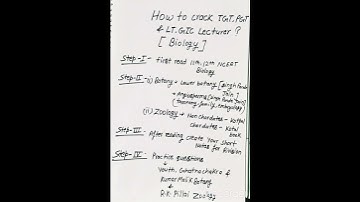 How to crack TGT, PGT
& LT. GIC Lecturer ?
[ Biology ]
Step-I - First read 11th, 12th NCERT
Biology
Step-II - i) Botany → Lower botany [Singh Pande Jain]
→ Angiosperm [Singh Pande Jain]
(Taxonomy, family, embryology)
(ii) Zoology → Non Chordates - Kotpal
Chordates - Kotpal
book
Step-III - After reading create your short
notes for Revision
Step-IV - Practice questions
↓
Youth, Ghatnachakra &
Kumar Malik Botany
&
R.K. Pillai Zoology